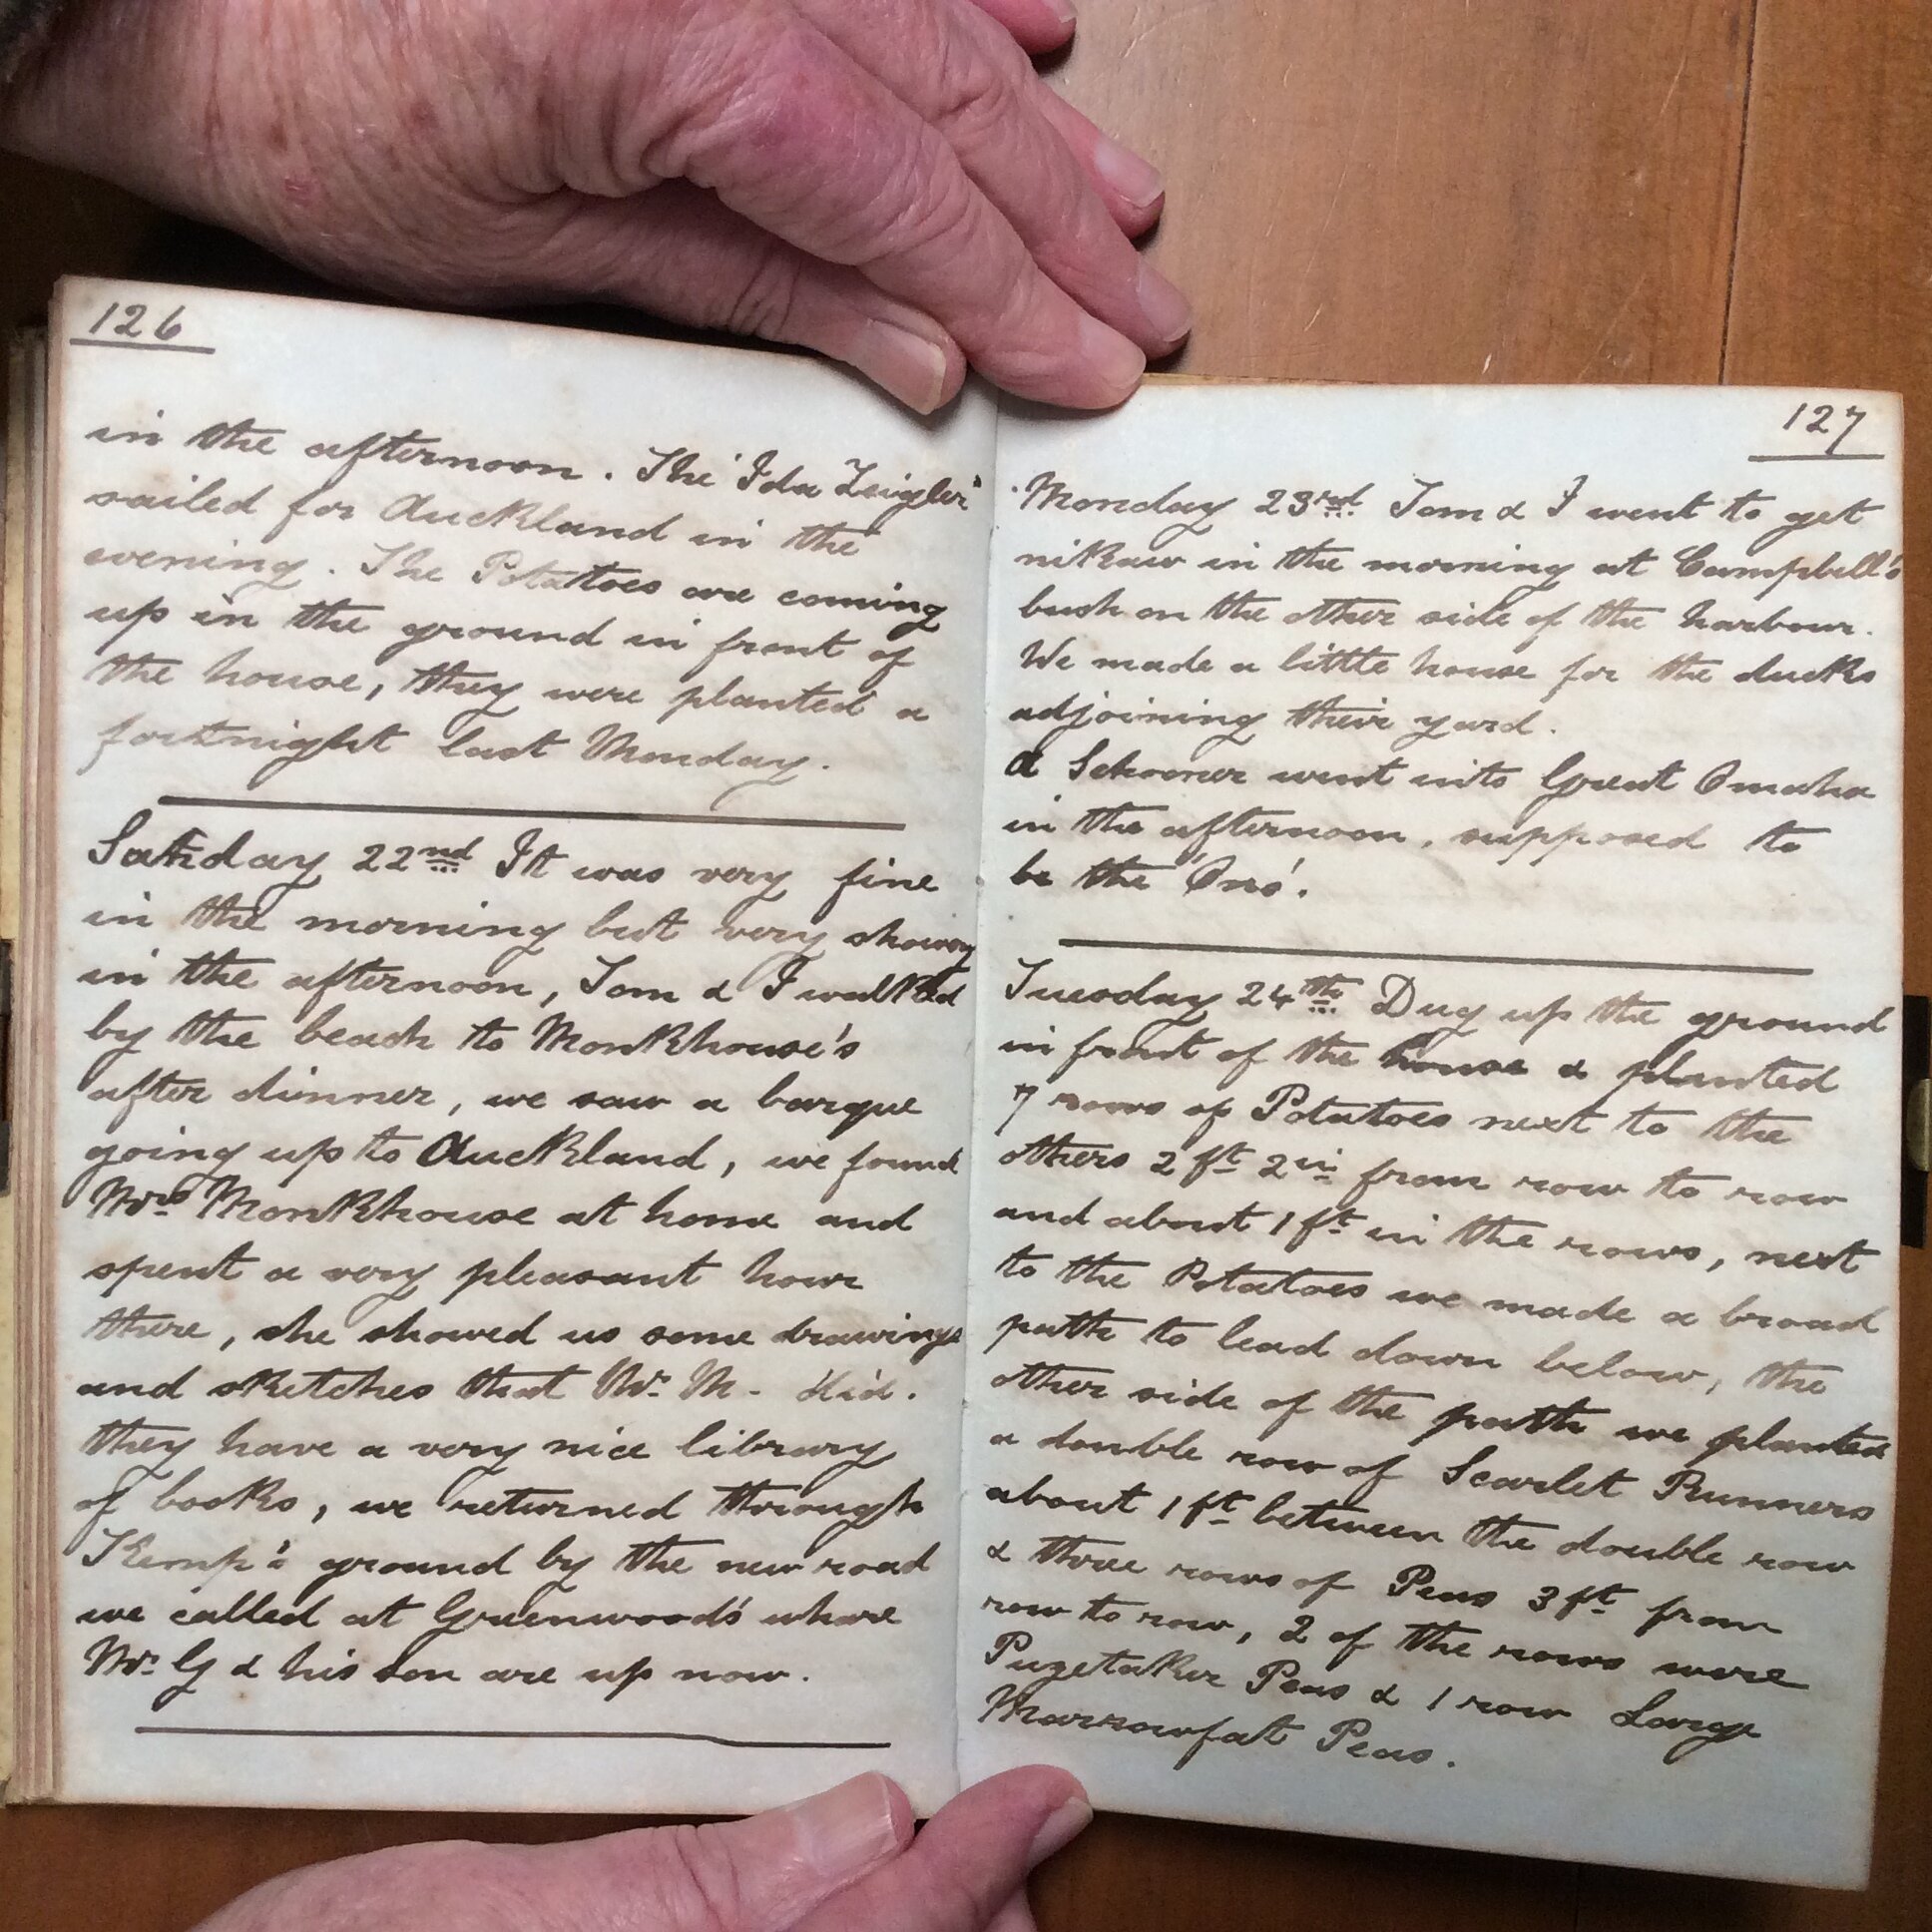 126
in the afternoon. The "Ida Zeigler"
sailed for Auckland in the
evening. The Potatoes are coming
up in the ground in front of
the house, they were planted a
fortnight last Monday.
Satuday 22nd It was very fine
in the morning but very showery
in the afternoon, Tom & I walked
by the beach to Monkhouse's
after dinner, we saw a barque
going up to Auckland, we found
Mrs Monkhouse at home and
spent a very pleasant hour
there, she showed us some drawings
and sketches that Mr. M. did.
they have a very nice library
of books, we returned through
Kemp's ground by the new road
we called at Greenwood's where
Mr. G & his son are up now.
127
Monday 23rd Tom & I went to get
nikaw in the morning at Campbell's
bush on the other side of the harbour.
We made a little house for the ducks
adjoining their yard.
A Schooner went into Great Omaha
in the afternoon, supposed to
be the
Tuesday 24th Dug up the ground
in front of the house & planted
7 rows of Potatoes next to the
others 2 ft 2 in from row to row
and about 1 ft in the rows, next
to the Potatoes we made a broad
path to lead down below, the
other side of the path we planted
a double row of Scarlet Runners
about 1 ft between the double row
& three rows of Peas 3 ft from
row to row, 2 of the rows were
Peas & 1 row Large
Marrowfat Peas.